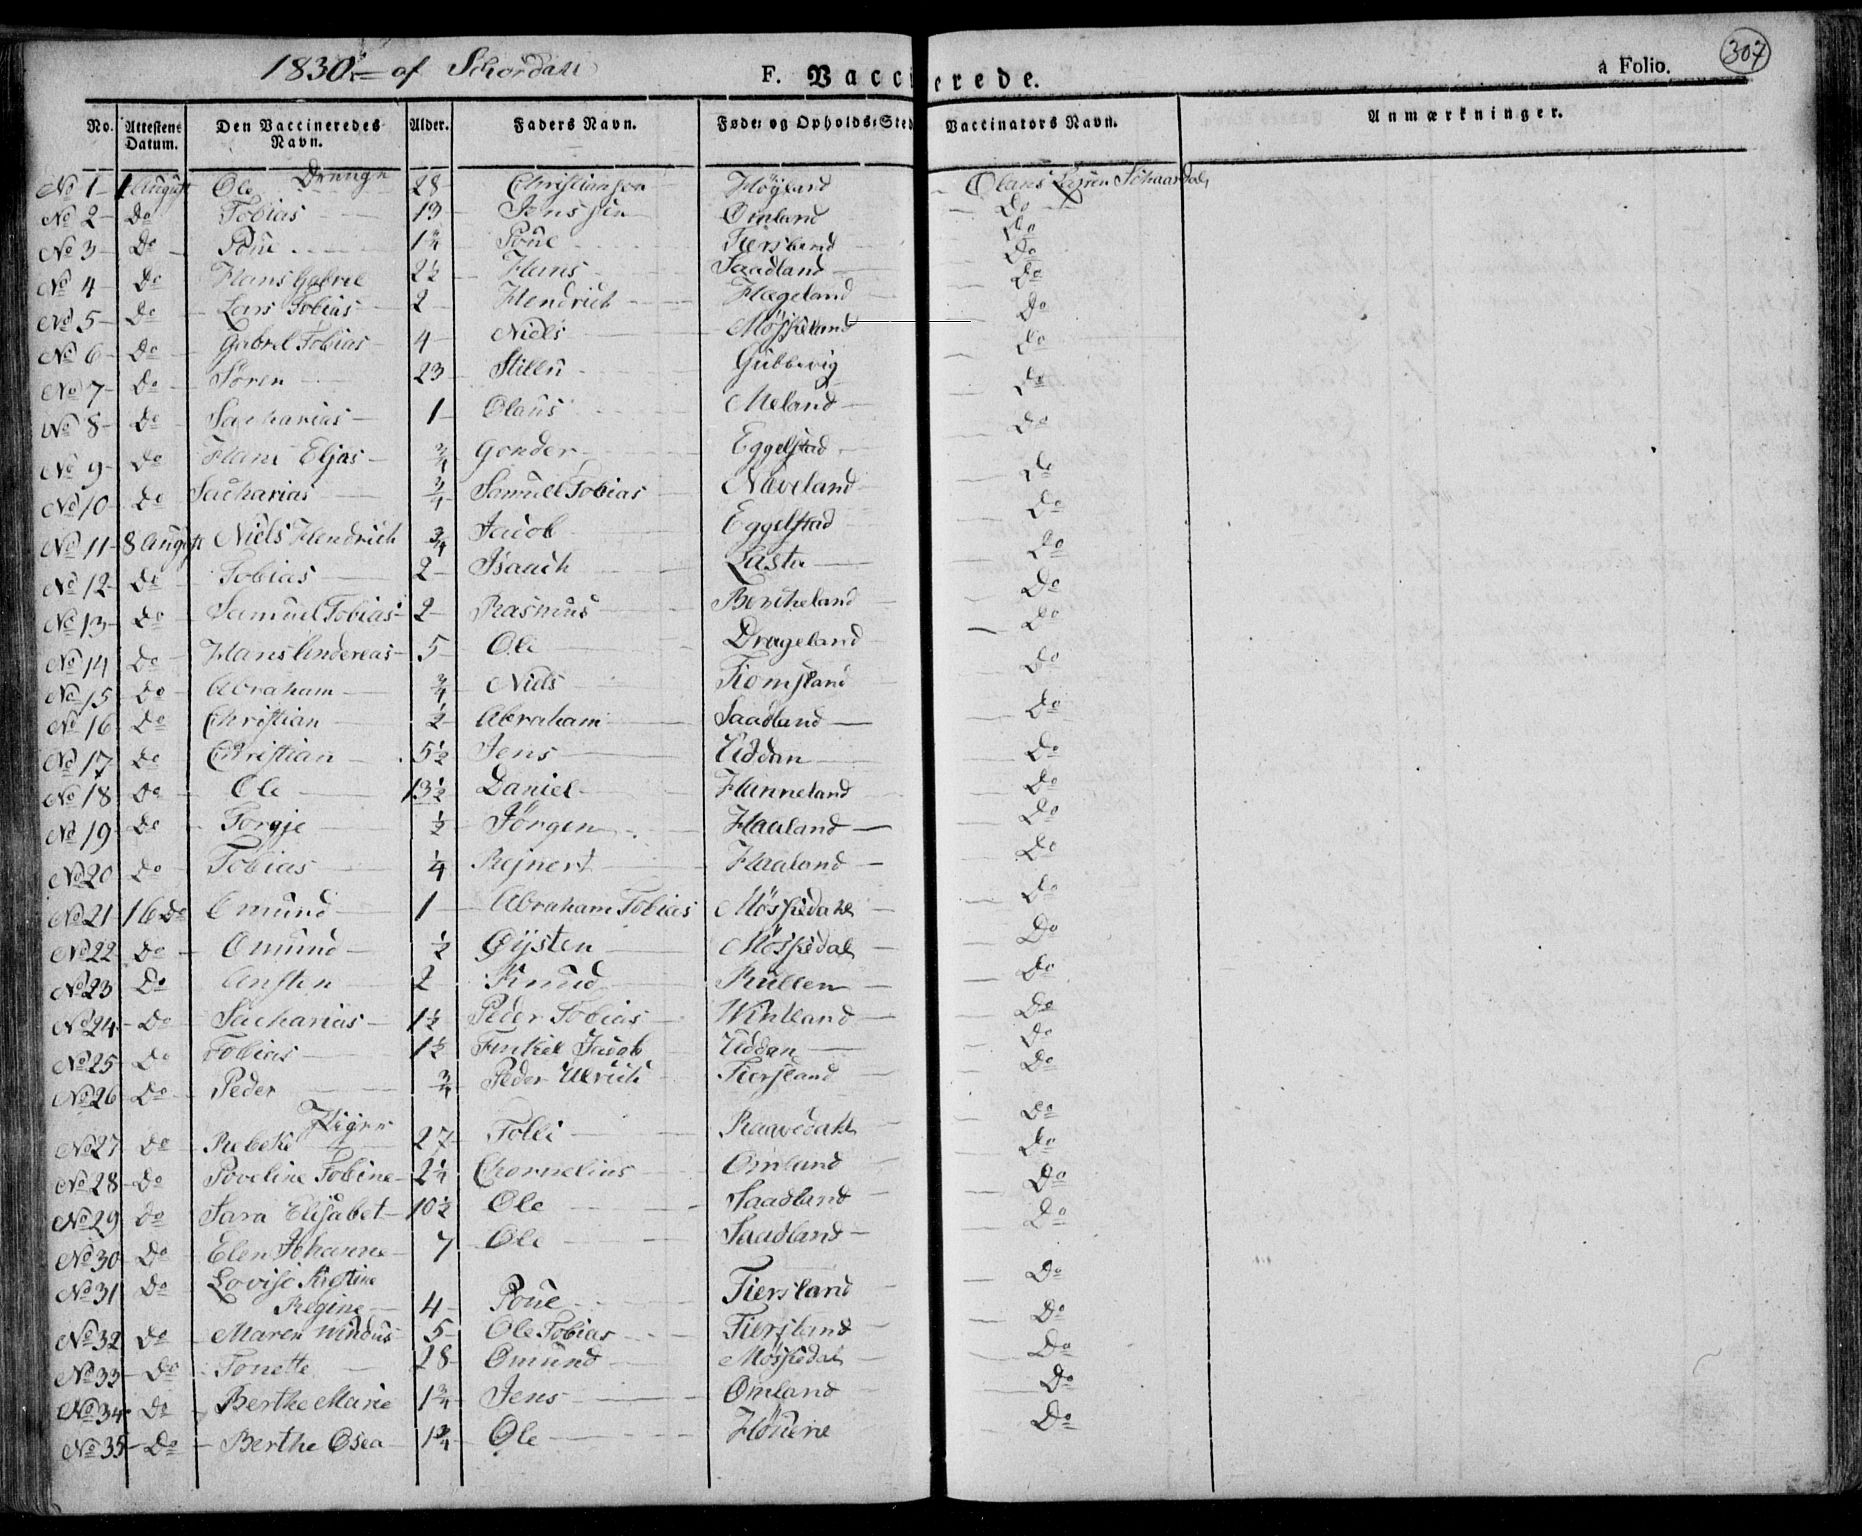 1830 af Schordahl F. Vaccinerede. a Folio. 307
No. Attestens Datum. Den Vaccineredes Navn. Alder. Faders Navn. Føde- og Opholds-Sted Vaccinators Navn. Anmærkninger.
Drenge
No 1 1 August Ole 28 Christianson Höyland Olaus Larsen Schaardal
No 2 Do Tobias 13 Jenssen Omland Do
No 3 Do Poue Poue Fiersland Do
No 4 Do Hans Gabrel 2½ Hans Saadland Do
No 5 Do Lars Tobias 2 Hendrich Hægeland Do
No 6 Do Gabrel Tobias 4 Niels Do
No 7 Do Sören 23 Gubbevig Do
No 8 Do Sacharias 1 Olaus Meland Do
No 9 Do Hans Elias ¾ Gunder Eggelstad Do
No 10 Do Sacharias ¾ Samuel Tobias Næveland Do
No 11 8 August Niels Hendrich ¾ Jacob Eggelstad Do
No 12 Do Tobias 2 Isaach Lasta Do
No 13 Do Samuel Tobias 2 Rasmus Bertheland Do
No 14 Do Hans Andereas 5 Ole Drageland Do
No 15 Do Abraham ¾ Niels Homsland Do
No 16 Do Christian ½ Abraham Saadland Do
No 17 Do Christian 5½ Jens Uddan Do
No 18 Do Ole 13½ Daniel Hunneland Do
No 19 Do Torgje ½ Jörgen Haaland Do
No 20 Do Tobias ¼ Rejnert Haaland Do
No 21 16 Do Omund 1 Abraham Tobias Mösskedahl Do
No 22 Do Omund ½ Øysten Mösskedal Do
No 23 Do Ansten 2 Knud Rullen Do
No 24 Do Sacharias 1½ Peder Tobias Do
No 25 Do Tobias 1½ Jacob Uddan Do
No 26 Do Peder ¾ Peder Ulrich Fiersland Do
Piger
No 27 Do Rebeke 27 Tolli Raavedahl Do
No 28 Do Poveline Tobine Chornelius Omland Do
No 29 Do Sara Elisabet 10½ Ole Saadland Do
No 30 Do Elen Johanne 7 Ole Saadland Do
No 31 Do Lovise Kistine
Regine 4 Poue Fiersland Do
No 32 Do Maren Windus 5 Ole Tobias Fiersland Do
No 33 Do Tonette 28 Omund Mösskedal Do
No 34 Do Berthe Marie 1¾ Jens Omland Do
No 35 Do Berthe Osea 1¾ Ole Do